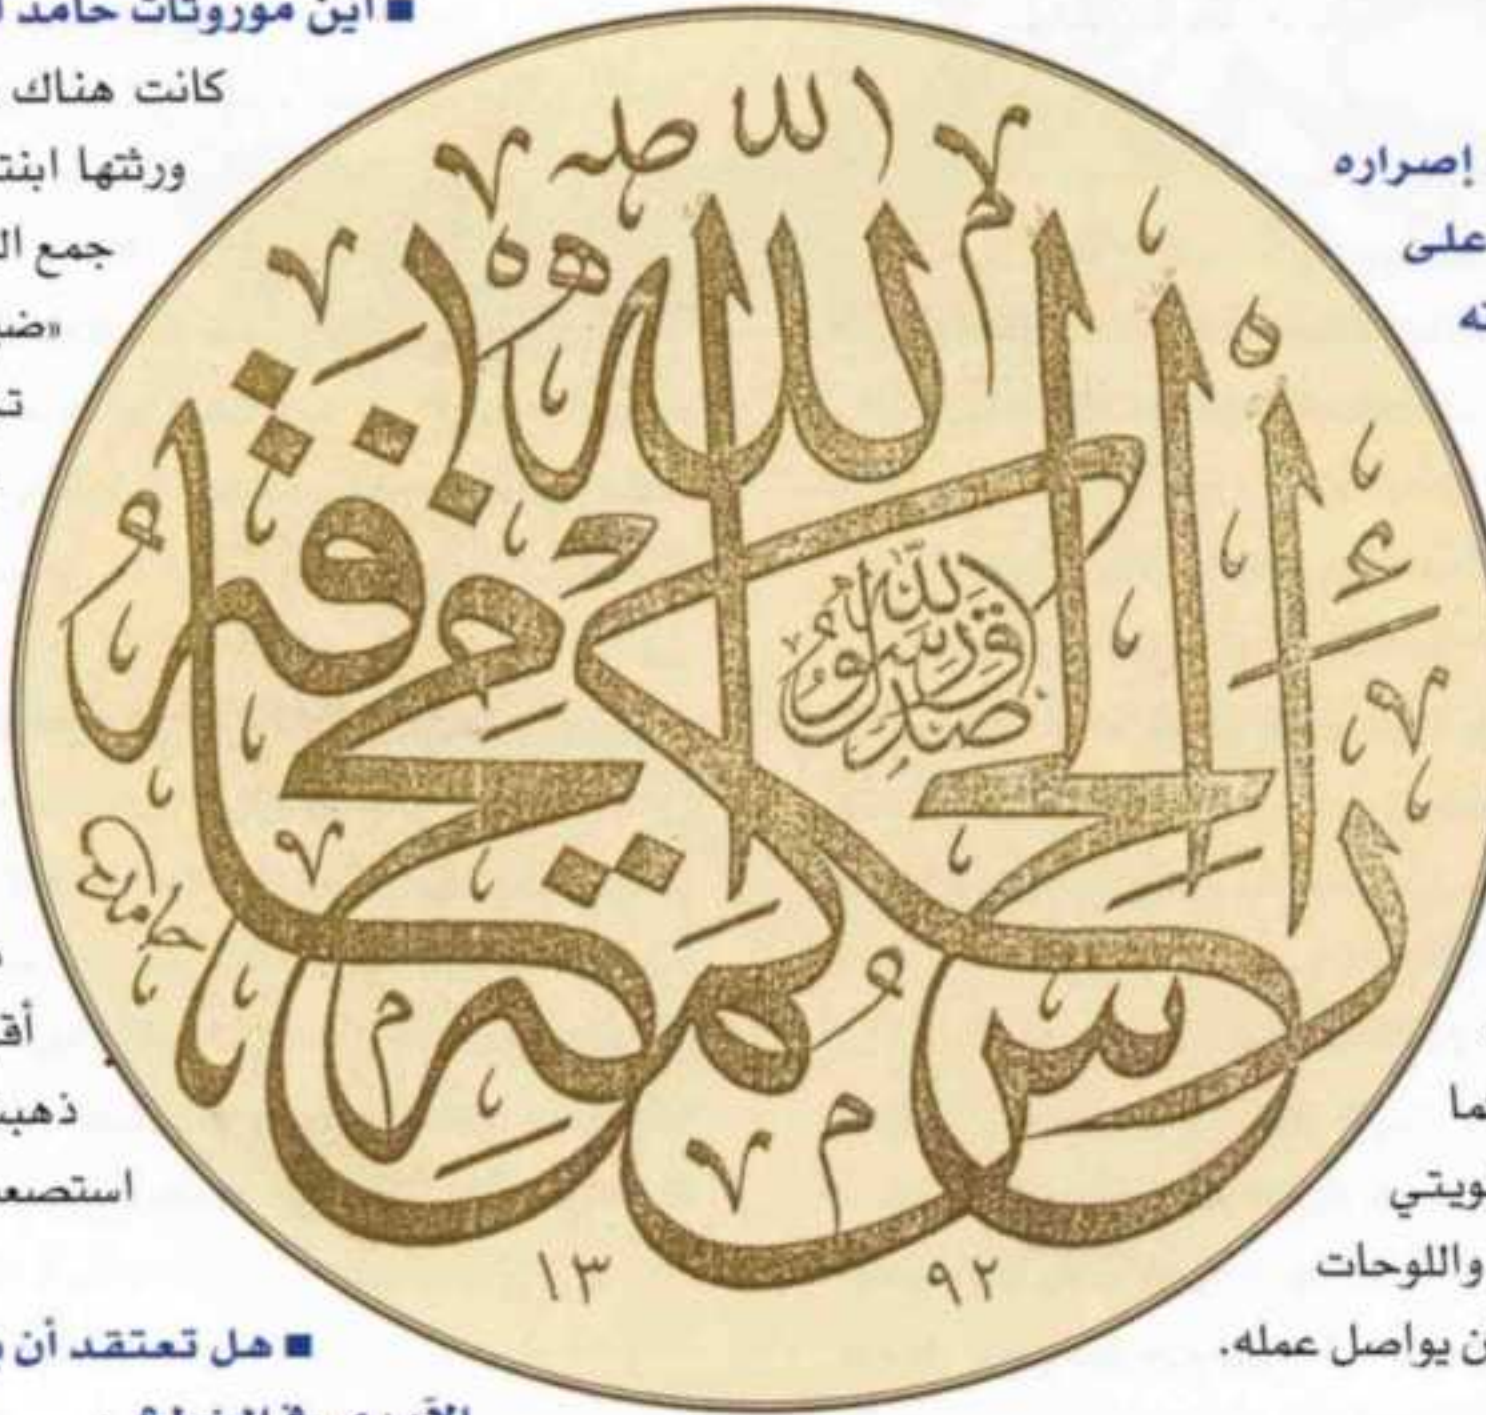 إصراره
على
ته
ما
ويتي
واللوحات
ن يواصل عمله.
رأس الحكمة مخافة الله
صدق رسول الله
حامد
١٣٩٢
■ أين موروثات حامد ا
كانت هناك
ورثتها ابنت
جمع ال
«ضب
أقا
ذهب
استصع
■ هل تعتقد أن